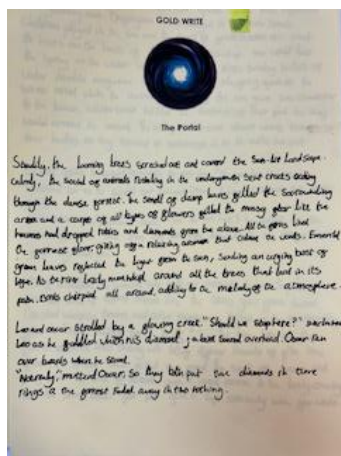 GOLD WRITE
The Portal
Steadily, the looming trees stretched out and covered the sun-lit landscape.
calmly, the sound of animals in the undergrowth sent crosts
through the dense forest. The smell of damp bark filled the surrounding
area and a carpet of all types of flowers filled the mossy floor like the
heavens had dropped rubies and diamonds from the above. All the ferns lined
the forrest floor, giving off a relaxing aroma that the woods. Emerald
green leaves reflected the light from the sun, sending an burst of
light. As terrier body around all the trees that laid in its
path. Birds chirped all around, adding to the melody of the atmosphere.
Leo and oscar strolled by a glowing creek. "Should we stop here?"
Leo as he fiddled when his diamond, a beat sound overhead. Oscar ran
over towards where he stood.
muttered Oscar. So they both put the diamonds in there
rings a the forrest faded away in two nothing.